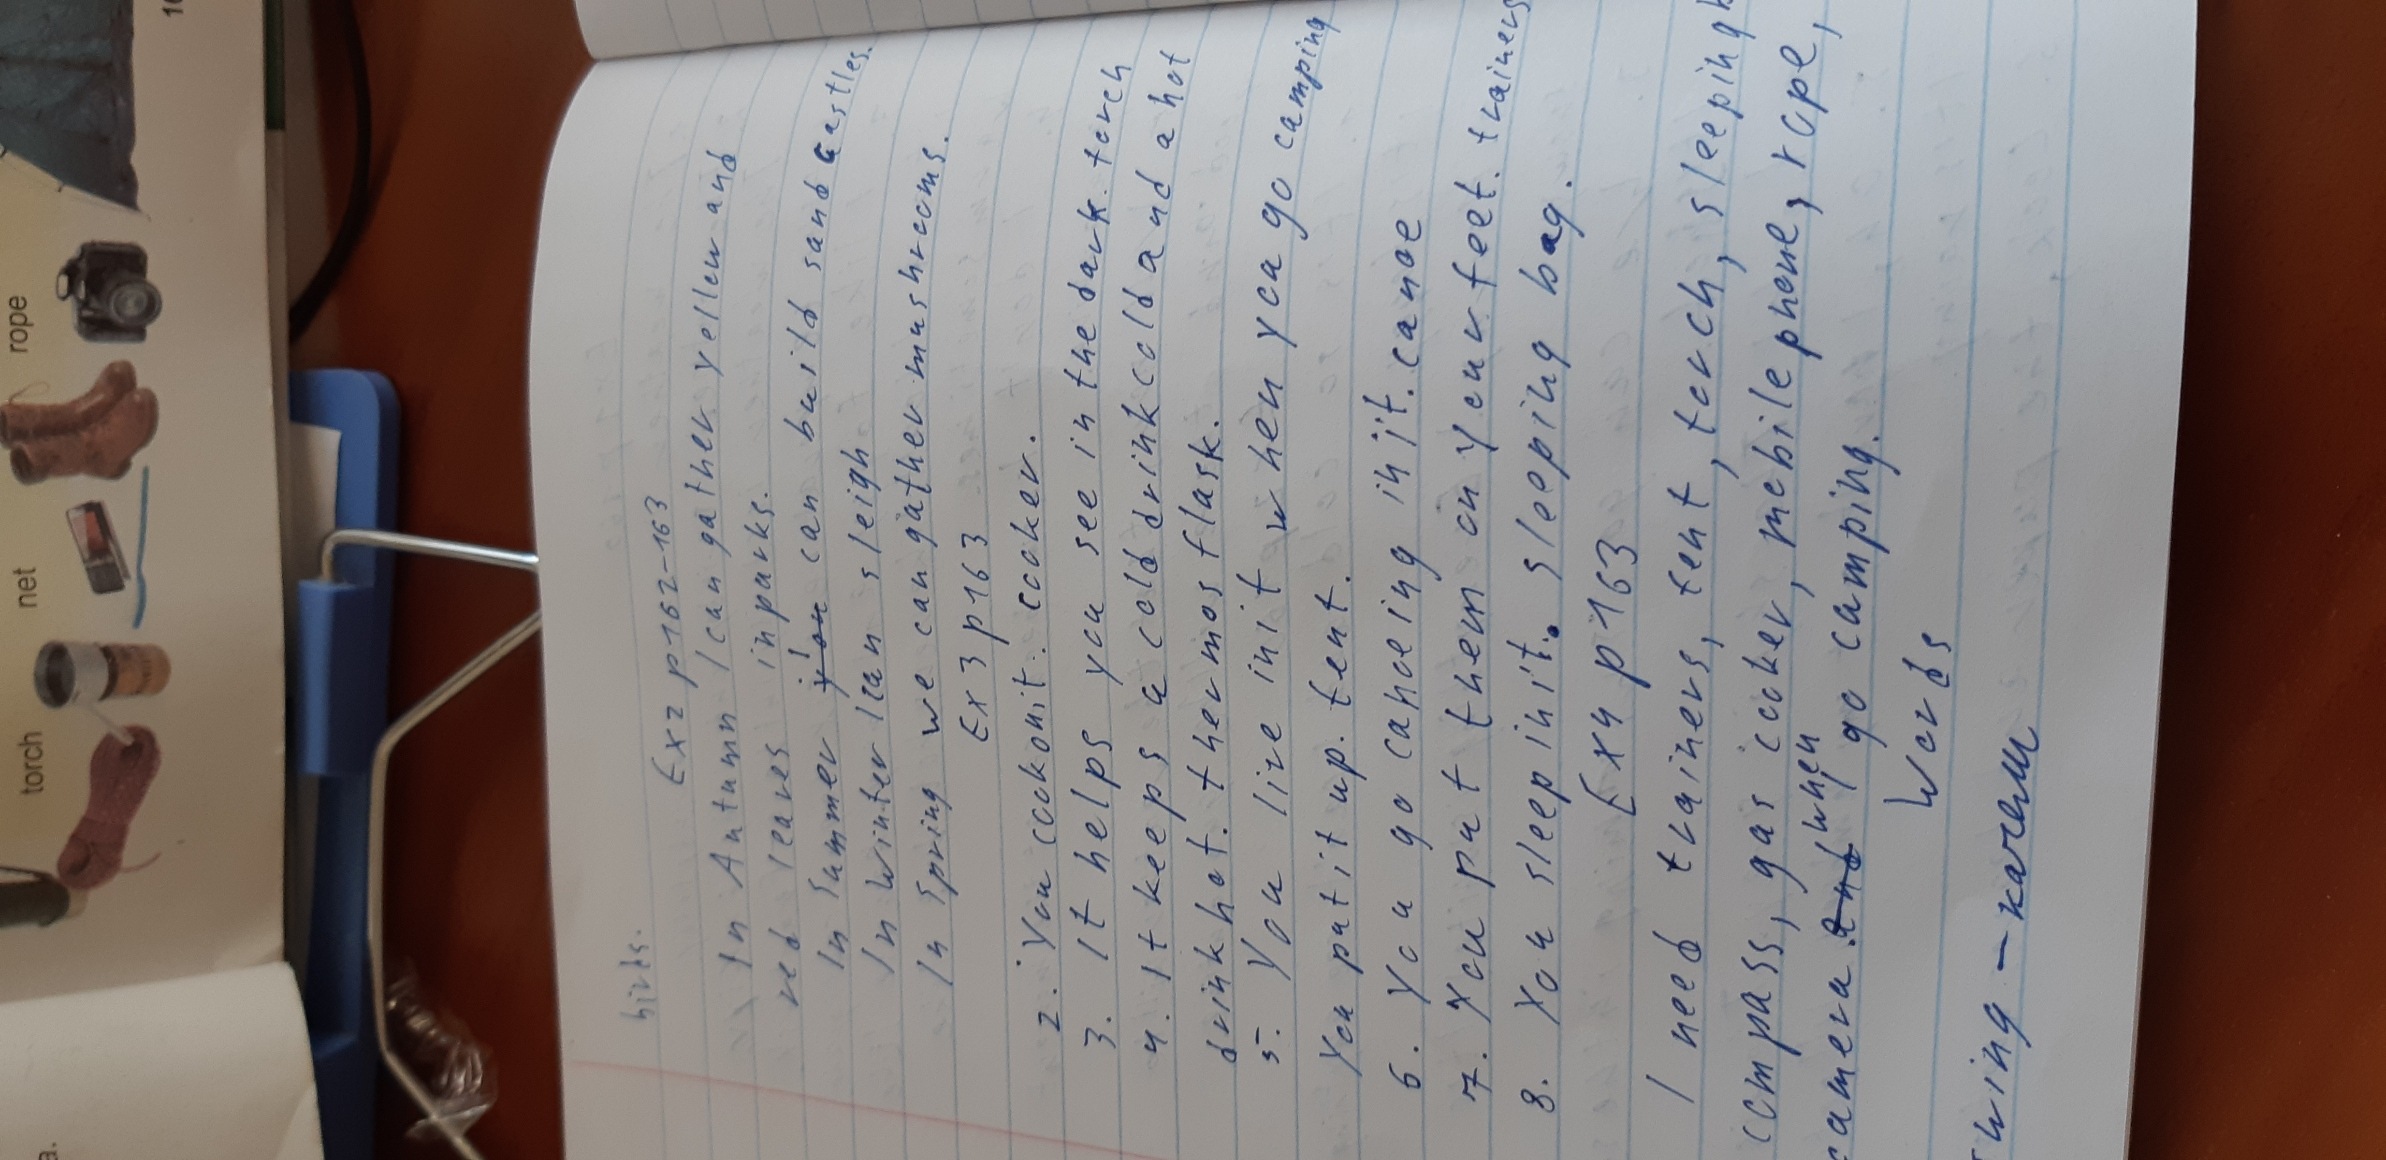 rope
net
torch
a.
birds.
Ex2 p162-163
In Autumn I can gather yellow and
red leaves in parks.
In Summer I can build sand castles.
In winter I can sleigh
In Spring we can gather mushrooms.
Ex3 p163
2. You cook on it. cooker.
3. It helps you see in the dark. torch
4. It keeps a cold drink cold and a hot
drink hot. thermos flask.
5. You live in it when you go camping
You put it up. tent.
6. You go canoeing in it. canoe
7. You put them on your feet. trainers
8. You sleep in it. sleeping bag.
Ex4 p163
I need trainers, tent, torch, sleeping
compass, gas cooker, mobile phone, rope,
camera. and when go camping.
Words
swing – качели